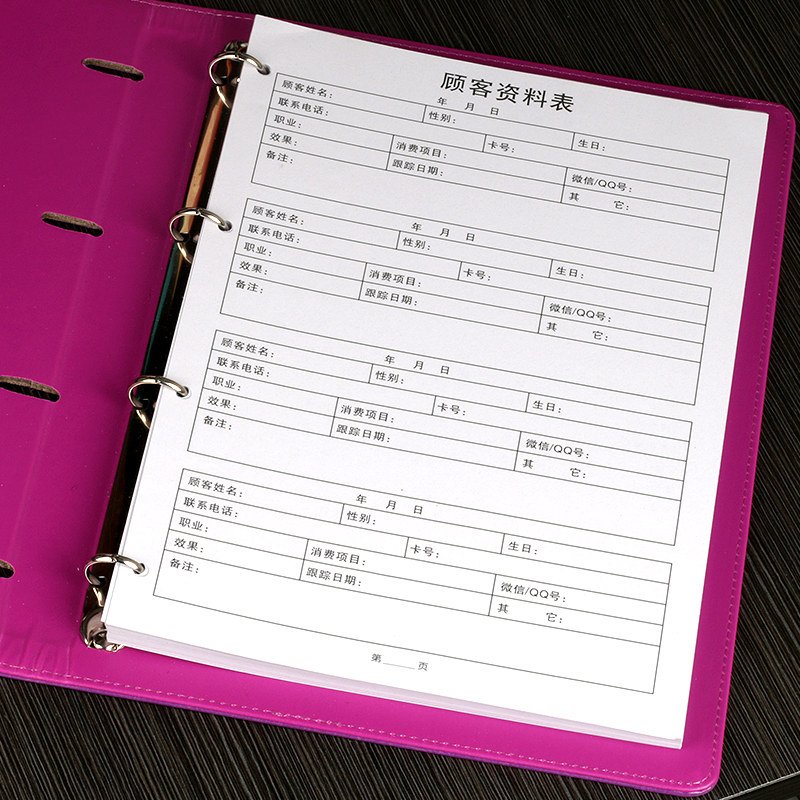 顾客资料表
年 月 日
顾客姓名： 性别： 生日：
联系电话： 卡号：
职业： 消费项目： 微信/QQ号：
效果： 跟踪日期： 其 它：
备注：
年 月 日
顾客姓名： 性别： 生日：
联系电话： 卡号：
职业： 消费项目： 微信/QQ号：
效果： 跟踪日期： 其 它：
备注：
年 月 日
顾客姓名： 性别： 生日：
联系电话： 卡号：
职业： 消费项目： 微信/QQ号：
效果： 跟踪日期： 其 它：
备注：
年 月 日
顾客姓名： 性别： 生日：
联系电话： 卡号：
职业： 消费项目： 微信/QQ号：
效果： 跟踪日期： 其 它：
备注：
第____页